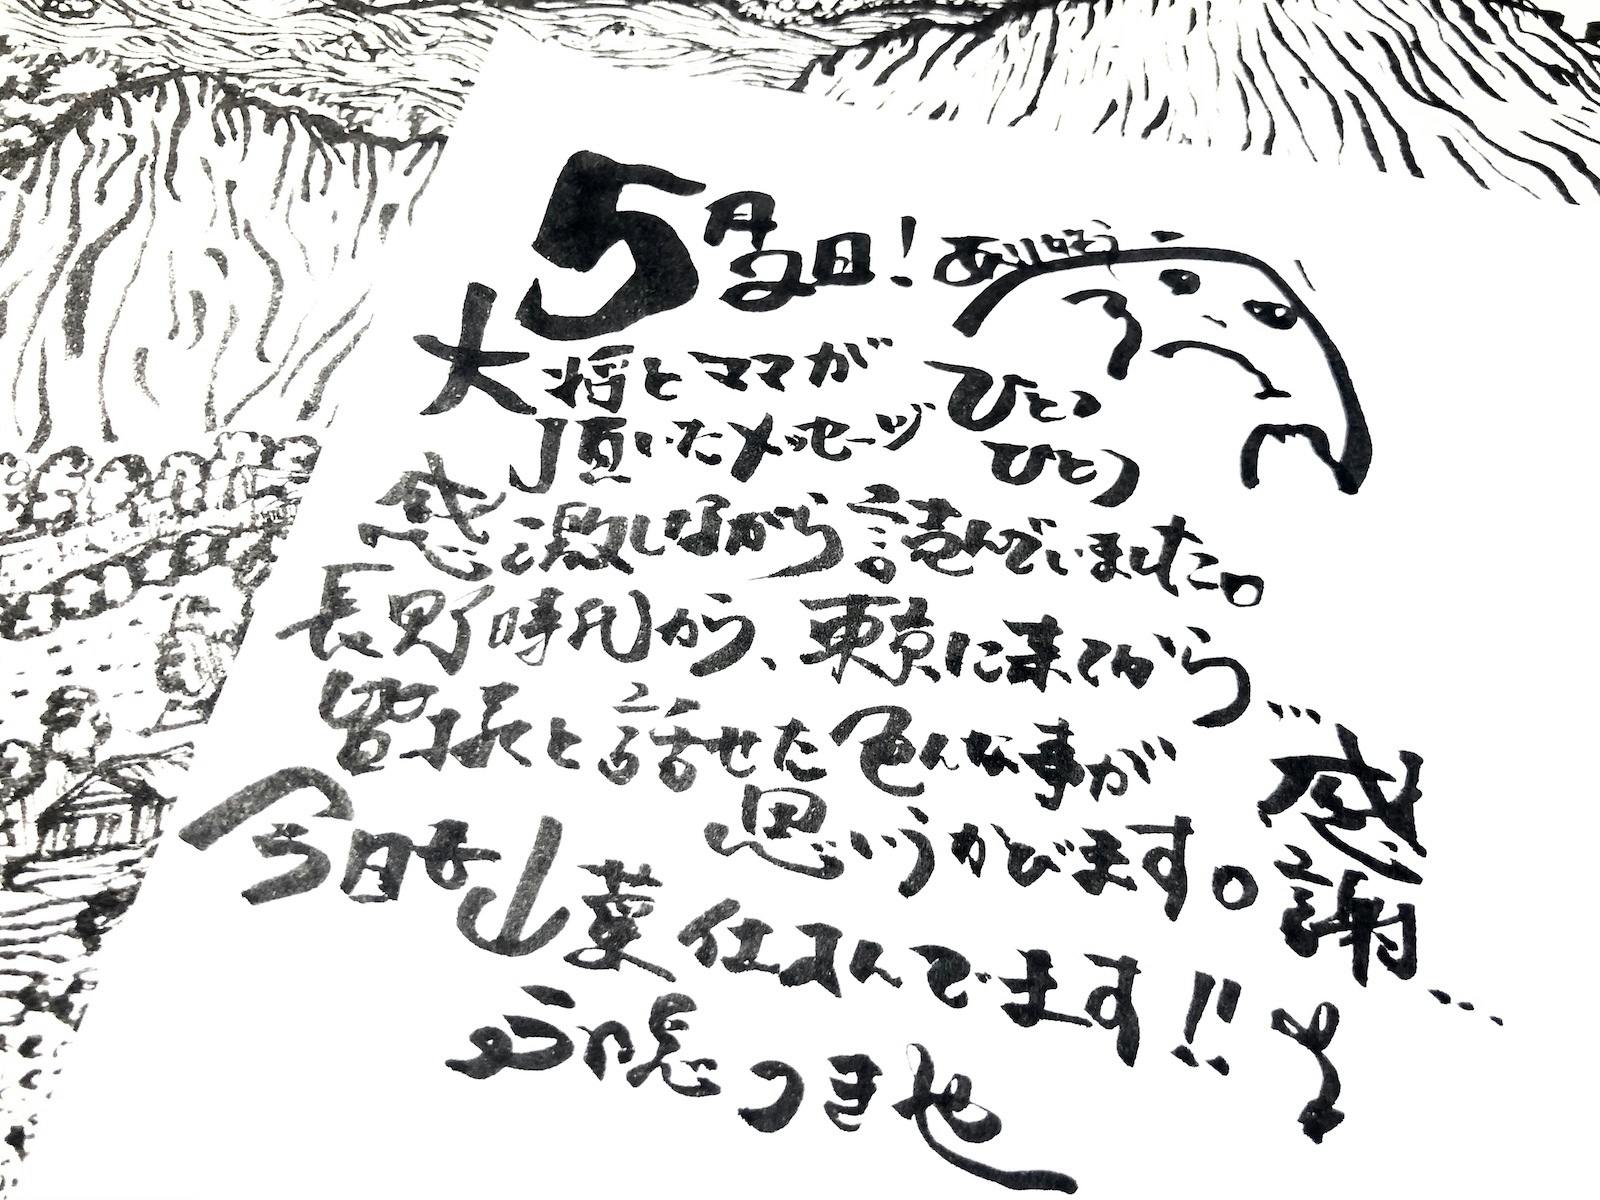 5月2日! ありがとう
大将とママが
頂いたメッセージ ひとつ
ひとつ
感激しながら読んでいました。
長野時代から、東京に来てから…
皆様と話せた色んな事が
思いうかびます。
感謝…
今日も山菜仕込んでます!!
つき也